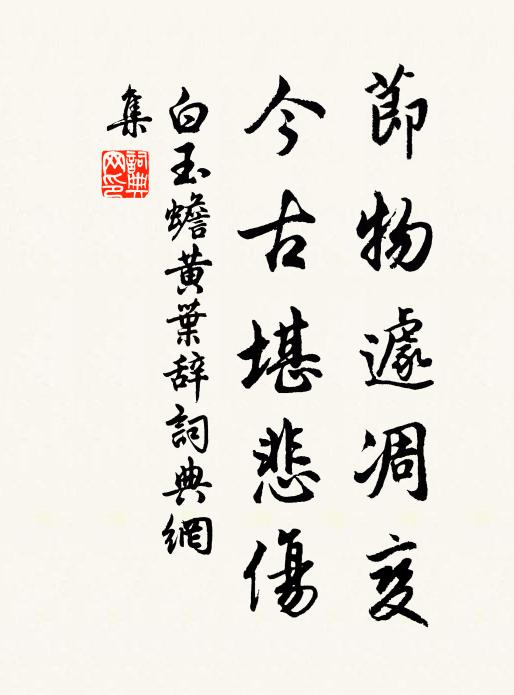 節物遽凋变
今古堪悲傷
白玉蟾黄葉辞詞典網
集
詞典网印